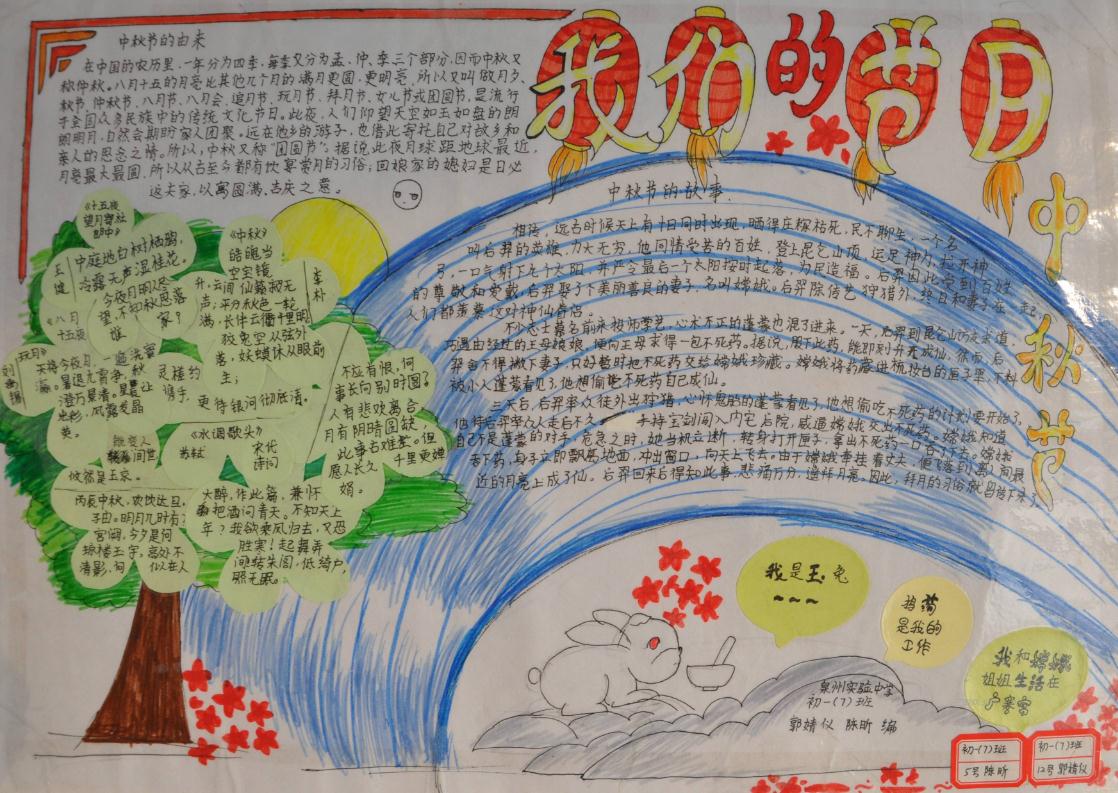 我们的节日
中秋节
中秋节的由来
在中国的农历里,一年分为四季,每季又分为孟、仲、季三个部分,因而中秋又
称仲秋。八月十五的月亮比其他几个月的满月更圆,更明亮,所以又叫做月夕、
秋节、仲秋节、八月节、八月会、追月节、玩月节、拜月节、女儿节或团圆节,是流行
于全国众多民族中的传统文化节日。此夜,人们仰望天空如玉如盘的朗
朗明月,自然会期盼家人团聚。远在他乡的游子,也借此寄托自己对故乡和
亲人的思念之情。所以,中秋又称"团圆节"。据说此夜月球距地球最近,
月亮最大最圆,所以从古至今都有饮宴赏月的习俗;回娘家的媳妇是日必
返夫家,以寓圆满、吉庆之意。
中秋节的故事
相传,远古时候天上有十日同时出现,晒得庄稼枯死,民不聊生,一个名
叫后羿的英雄,力大无穷,他同情受苦的百姓,登上昆仑山顶,运足神力,拉开神
弓,一口气射下九个太阳,并严令最后一个太阳按时起落,为民造福。后羿因此受到百姓
的尊敬和爱戴,后羿娶了个美丽善良的妻子,名叫嫦娥。后羿除传艺狩猎外,终日和妻子在一起,
人们都羡慕这对
不少志士慕名前来投师学艺,心术不正的蓬蒙也混了进来。一天,后羿到昆仑山访友求道,
巧遇由此经过的王母娘娘,便向王母求得一包不死药。据说,服下此药,能即刻升天成仙。然而,后
羿舍不得撇下妻子,只好暂时把不死药交给嫦娥珍藏。嫦娥将药藏进梳妆台的百宝匣,不料
被小人蓬蒙看见了,他想偷吃不死药自己成仙。
三天后,后羿率众徒外出狩猎,心怀鬼胎的蓬蒙看见了,他想偷吃不死药的计划要开始了,
他待后羿率众人走后不久,手持宝剑闯入内宅后院,威逼嫦娥交出不死药。嫦娥知道
自己不是蓬蒙的对手,危急之时,她当机立断,转身打开匣子,拿出不死药一口吞了下去。嫦娥
吞下药,身子立即飘离地面,冲出窗口,向天上飞去。由于嫦娥牵挂着丈夫,便飞落到离人间最
近的月亮上成了仙。后羿回来后得知此事,悲痛万分,遥拜月亮。因此,拜月的习俗就留传下来了
《十五夜
望月寄杜
郎中》
王
建
中庭地白树栖鸦,
冷露无声湿桂花。
今夜月明人尽
望,不知秋思落
谁
家?
《中秋》
李
朴
皓魄当
空宝镜
升,云间仙籁寂无
声;平分秋色一轮
满,长伴云衢千里明;
狡兔空从弦外
落,妖蟆休从眼前
生;
灵槎约
携手,
更待银河彻底清。
《八月
十五夜
玩月》
刘禹锡
天将今夜月,一遍洗寰
瀛。暑退九霄净,秋
澄万景清。星辰让
光彩,风露发晶
英。
能变人
间世,
攸然是玉京。
《水调歌头》
苏轼
宋代
诗词
丙辰中秋,欢饮达旦,
大醉,作此篇,兼怀
子由。明月几时有?
把酒问青天。不知天上
宫阙,今夕是何
年?我欲乘风归去,又恐
琼楼玉宇,高处不
胜寒!起舞弄
清影,何
似在人
间转朱阁,低绮户,
照无眠。
不应有恨,何
事长向别时圆?
人有悲欢离合,
月有阴晴圆缺,
此事古难全。但
愿人长久,
千里更婵
娟。
我是玉兔
~~~
捣药
是我的
工作
我和嫦娥
姐姐生活在
广寒宫
泉州实验中学
初一(7)班
郭婧仪 陈昕 编
初一(7)班
5号 陈昕
初一(7)班
12号 郭婧仪